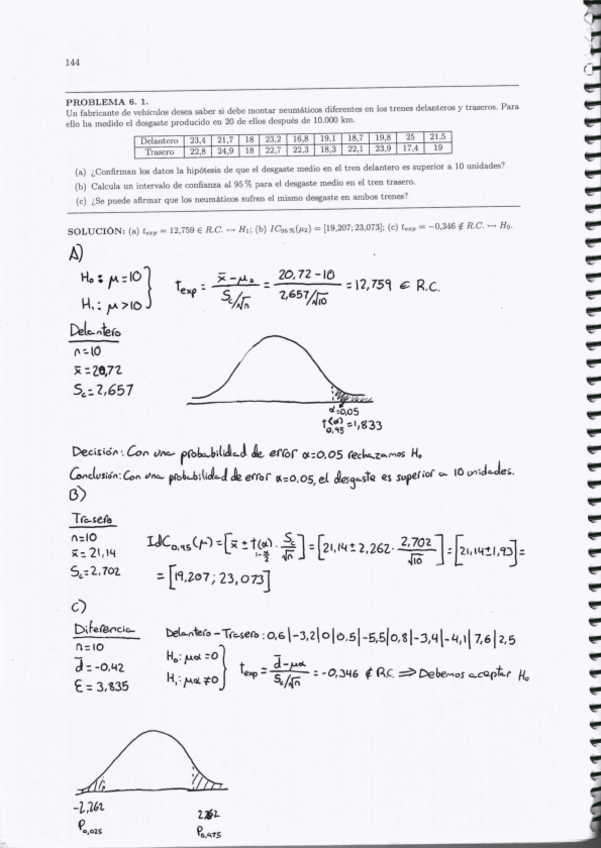 144
PROBLEMA 6. 1.
Un fabricante de vehículos desea saber si debe montar neumáticos diferentes en los trenes delanteros y traseros. Para
ello ha medido el desgaste producido en 20 de ellos después de 10.000 km.
Delantero 23,4 21,7 18 23,2 16,8 19,1 18,7 19,8 25 21,5
Trasero 22,8 24,9 18 22,7 22,3 18,3 22,1 23,9 17,4 19
(a) ¿Confirman los datos la hipótesis de que el desgaste medio en el tren delantero es superior a 10 unidades?
(b) Calcula un intervalo de confianza al 95 % para el desgaste medio en el tren trasero.
(c) ¿Se puede afirmar que los neumáticos sufren el mismo desgaste en ambos trenes?
SOLUCIÓN: (a) t_exp = 12,759 ∈ R.C. ↦ H₁; (b) IC₉₅%(μ₂) = [19,207; 23,073]; (c) t_exp = −0,346 ∉ R.C. ↦ H₀.
A)
H₀: μ=10
H₁: μ>10
t_exp = (x̄−μ₀)/(S_c/√n) = (20,72−10)/(2,657/√10) = 12,759 ∈ R.C.
Delantero
n=10
x̄=20,72
S_c=2,657
α=0,05
t(α) 0,95 =1,833
Decisión: Con una probabilidad de error α=0,05 rechazamos H₀
Conclusión: Con una probabilidad de error α=0,05, el desgaste es superior a 10 unidades.
B)
Trasero
n=10
x̄=21,14
S_c=2,702
IdC₀,₉₅(μ)=[x̄ ± t(α) 1−α/2 · S_c/√n]=[21,14±2,262·2,702/√10]=[21,14±1,93]=
=[19,207; 23,073]
C)
Diferencia
n=10
d̄=-0,42
Ɛ=3,835
Delantero−Trasero: 0,6|−3,2|0|0.5|−5,5|0,8|−3,4|−4,1|7,6|2,5
H₀: μα=0
H₁: μα≠0
t_exp = (d̄−μα)/(S_c/√n) = −0,346 ∉ R.C. ⇒ Debemos aceptar H₀
-2,262
P₀,₀₂₅
2,262
P₀,₉₇₅